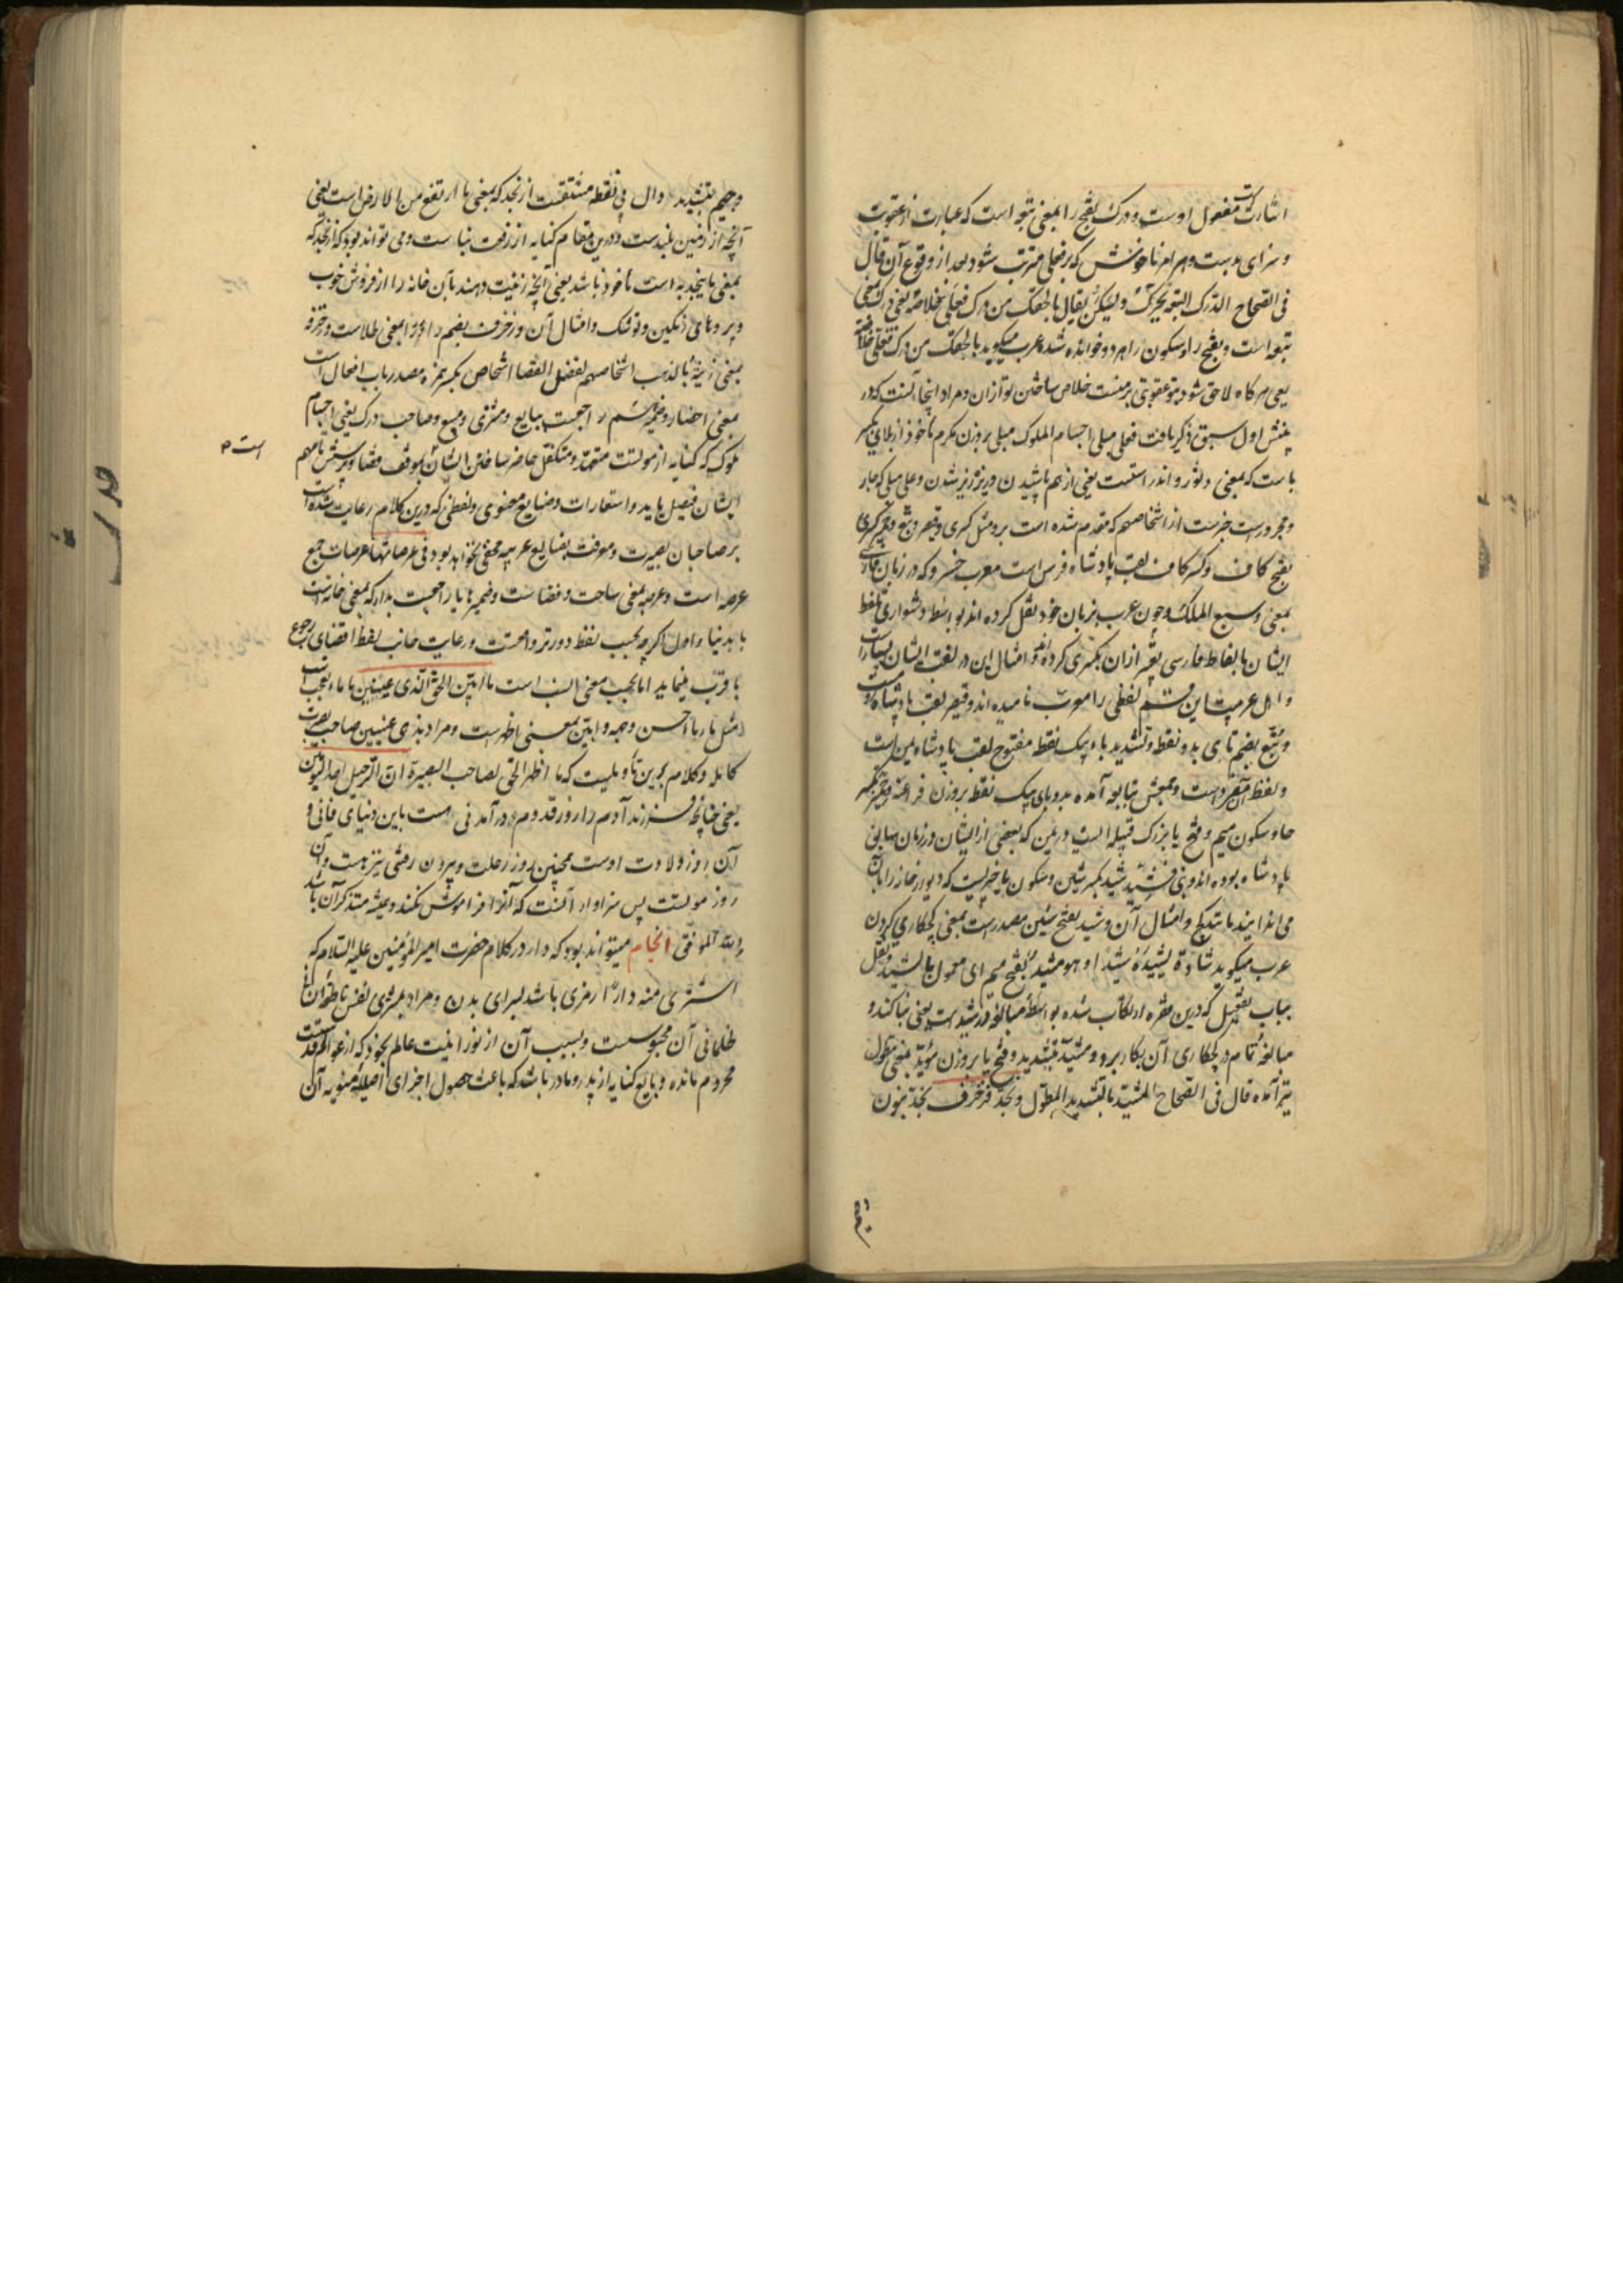 اشارتست مفعول اوست و درک بفتح را بمعنی تبعه است که عبارت از عقوبت
و سزای بدست و هر امر ناخوش که بر فعلی مترتب شود بعد از وقوع آن قال
فی الصحاح الدرک التبعه یحرک و یسکن یقال ما لحقک من درک فعلی خلاصه یعنی درک بمعنی
تبعه است و بفتح را و سکون را هر دو خوانده شده عرب میگوید ما لحقک من درک فعلی خلاصه
یعنی هر گاه لاحق شود بتو عقوبتی بر منست خلاص ساختن تو ازان و مراد اینجا آنست که در
پنش اول سبق ذکر یافت فعلی مبلی اجسام الملوک مبلی بر وزن مکرم ماخوذ از بلای بکسر
باست که بمعنی دثور و اندراسست یعنی از هم پاشیدن و ریزریز شدن و علی مبلی که جار
و مجرورست خبرست از اشخاصهم که مقدم شده است برو مثل کسری و قیصر و تبع و حمیر کسری
بفتح کاف و کسر کاف لقب پادشاه فرس است معرب خسرو که در زبان فارسی
بمعنی وسیع الملک و چون عرب بزبان خود نقل کرده اند بواسطه دشواری تلفظ
ایشان بالفاظ فارسی تعبیر ازان بکسری کرده اند و امثال این در لغت ایشان بسیارست
و اهل عربیت این قسم لفظی را معرب نامیده اند و قیصر لقب پادشاه روم است
و تبع بضم تای بدو نقطه و تشدید باء یک نقطه مفتوح لقب پادشاه یمن است
و لفظ آن مفردست و جمعش تبابعه آمده بدو بای یک نقطه بر وزن فراعنه و حمیر بکسر
حا و سکون میم و فتح یا بزرگ قبیله ایست در یمن که بعضی از ایشان در زمان سابق
پادشاه بوده اند و بنی فشید شید بکسر شین و سکون یا چیزیست که دیوار خانه را بآن
می اندایند مانند گچ و امثال آن و شید بفتح شین مصدرست بمعنی گچکاری کردن
عرب میگوید شاده یشیده شیدا و هو مشید بفتح میم ای معمول بالشید و نقل
بباب تفعیل که درین فقره ارتکاب شده بواسطه مبالغه در شید است یعنی بنا کند و
مبالغه تمام در گچکاری آن بکار برد و مشید بتشدید و فتح یا بر وزن مؤید بمعنی مطول
نیز آمده قال فی الصحاح المشید بالتشدید المطول و نجد فزخرف نجد بنون
و جیم بتشدید و دال بی نقطه مشتقست از نجد که بمعنی ما ارتفع من الارض است یعنی
آنچه از زمین بلندست و درین مقام کنایه از رفعت بناست و می تواند بود که از نجد که
بمعنی ما ینجد به است ماخوذ باشد یعنی آنچه زینت دهند بآن خانه را از فروش خوب
و پرده های رنگین و توشک و امثال آن و زخرف بضم زا و را بمعنی طلاست و زخرف
بمعنی زینه بالذهب اشخاصهم لفصل القضا اشخاص بکسر همزه مصدر باب افعال است
بمعنی احضار و ضمیر هم راجعست ببایع و مشتری و مبیع و صاحب درک یعنی اجسام
ملوک که کنایه از مولتست متعهد و متکفل حاضر ساختن ایشان بموقف قضا و پرسش تا مهم
ایشان فیصل یابد و استعارات و صنایع معنوی و لفظی که درین کلام رعایت شده است
بر صاحبان بصیرت و معرفت بصنایع عربیه مخفی نخواهد بود فی عرصاتها عرصات جمع
عرصه است و عرصه بمعنی ساحت و فضاست و ضمیر ها یا راجعست بدار که بمعنی خانه است
یا بدنیا و اول اگر چه بحسب لفظ دورتر واقعست و رعایت جانب لفظ اقتضای رجوع
باقرب مینماید اما بحسب معنی انسب است ما ابین الحق الذی عینین ما ماء تعجب است
مثل ما در ما احسن وجهه و ابین بمعنی اظهرست و مراد بذی عینین صاحب بصیرت
کامله و کلام برین تأویلست که ما اظهر الحق لصاحب البصیرة ان الرحیل احد الیومین
یعنی چنانچه فرزند آدم را روز قدوم و در آمدنی هست باین دنیای فانی و
آن روز ولادت اوست همچنین روز رحلت و بیرون رفتنی نیز هست و آن
روز موتست پس سزاوار آنست که آنرا فراموش نکند و همیشه متذکر آن باشد
والله الموفق انجام میتواند بود که دار در کلام حضرت امیر المؤمنین علیه السلام که
اشتری منه دارا رمزی باشد برای بدن و مراد بمشتری نفس ناطقه در آن
ظلمانی آن محبوسست و بسبب آن از نورانیت عالم خود که از عوالم قدسست
محروم مانده و بایع کنایه از پدر و مادر باشد که باعث حصول اجزای اصلیه منویه آن
است م